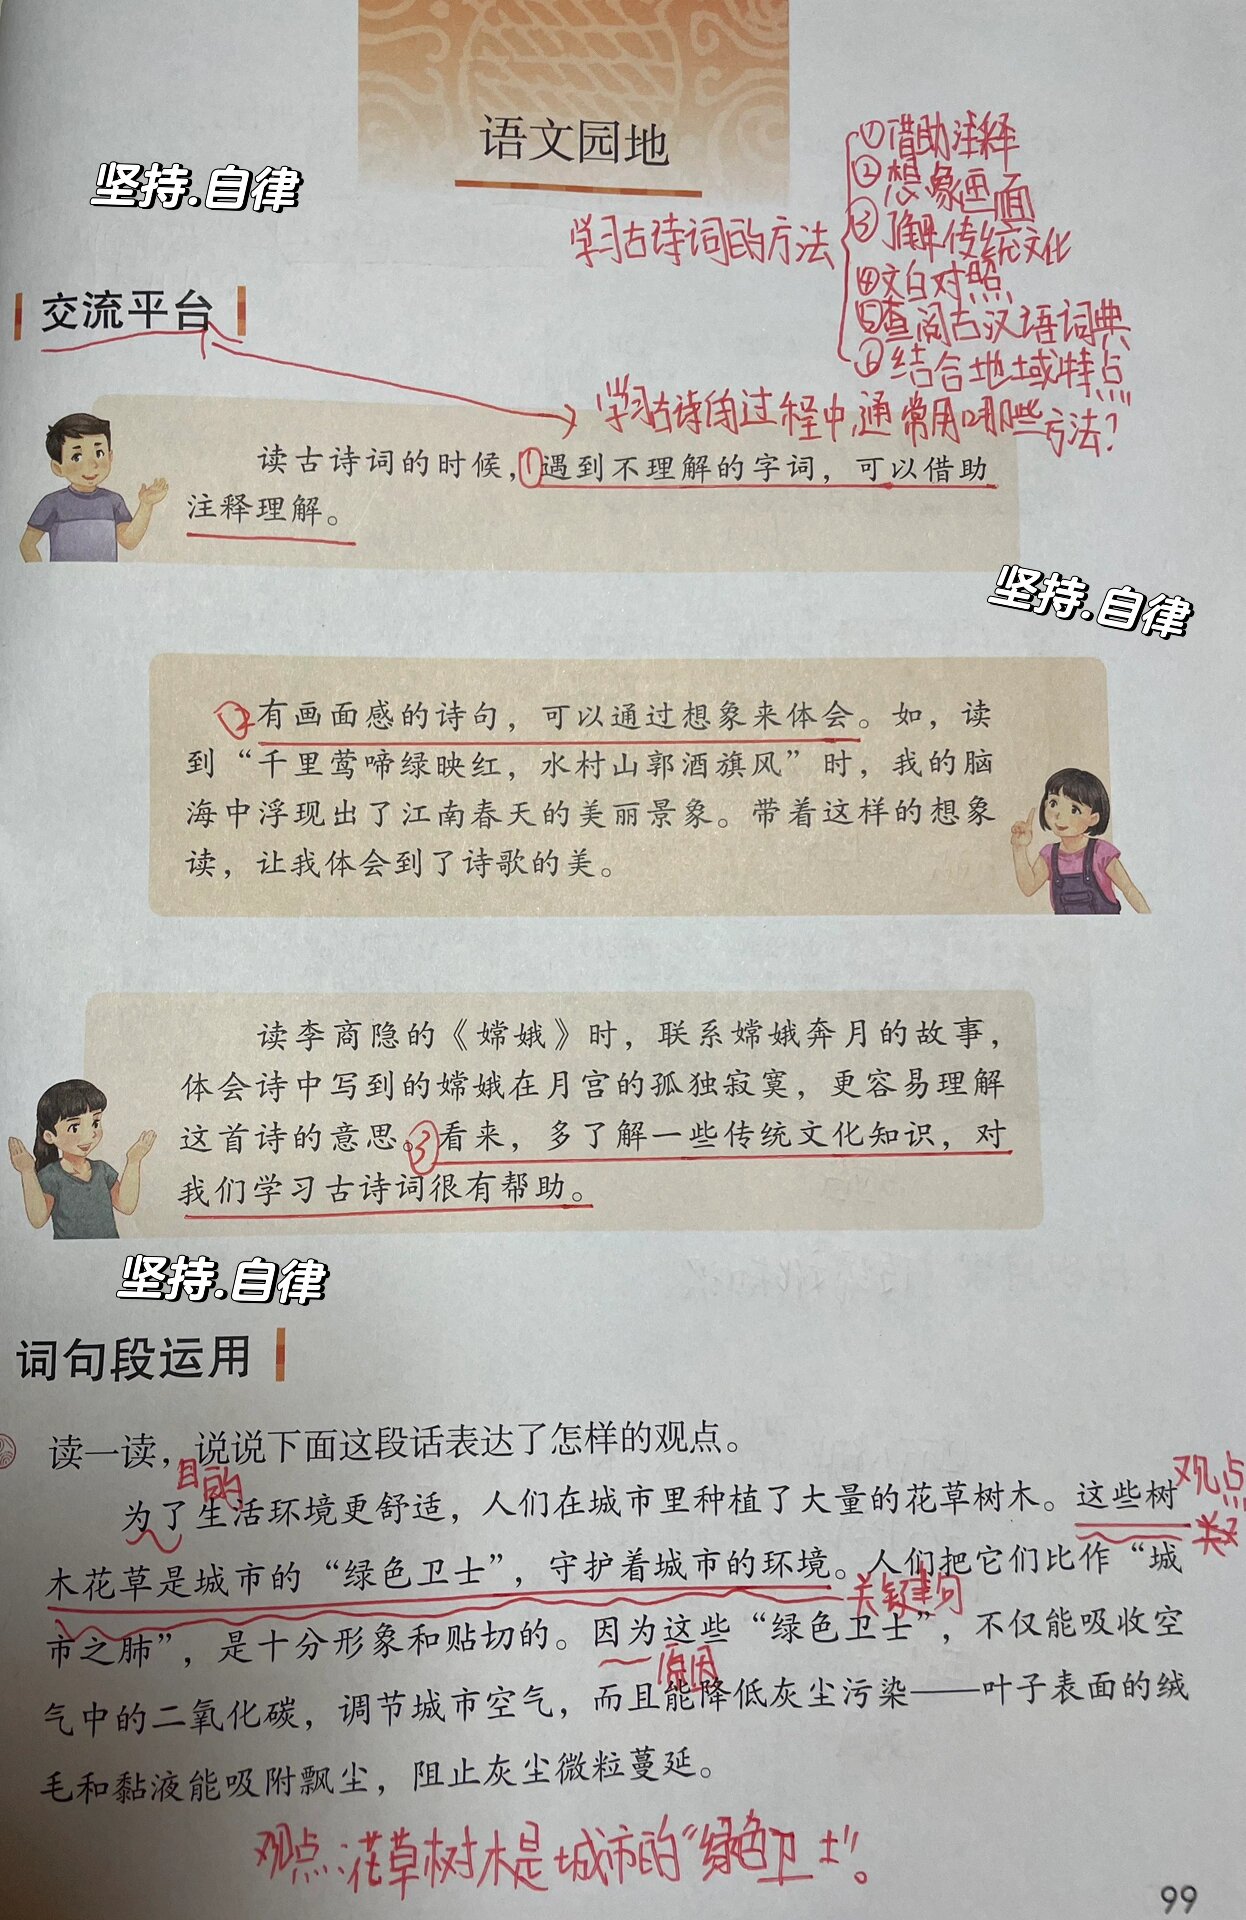 语文园地
坚持.自律
学习古诗词的方法
①借助注释
②想象画面
③了解传统文化
④文白对照
⑤查阅古汉语词典
⑥结合地域特点
交流平台
“学习古诗的过程中,通常用哪些方法?”
读古诗词的时候,①遇到不理解的字词，可以借助
注释理解。
坚持.自律
②有画面感的诗句，可以通过想象来体会。如，读
到“千里莺啼绿映红，水村山郭酒旗风”时，我的脑
海中浮现出了江南春天的美丽景象。带着这样的想象
读，让我体会到了诗歌的美。
读李商隐的《嫦娥》时，联系嫦娥奔月的故事，
体会诗中写到的嫦娥在月宫的孤独寂寞，更容易理解
这首诗的意思。③看来，多了解一些传统文化知识，对
我们学习古诗词很有帮助。
坚持.自律
词句段运用
读一读，说说下面这段话表达了怎样的观点。
目的
观点
为了生活环境更舒适，人们在城市里种植了大量的花草树木。这些树
木花草是城市的“绿色卫士”，守护着城市的环境。人们把它们比作“城
关键句
市之肺”，是十分形象和贴切的。因为这些“绿色卫士”，不仅能吸收空
原因
气中的二氧化碳，调节城市空气，而且能降低灰尘污染——叶子表面的绒
毛和黏液能吸附飘尘，阻止灰尘微粒蔓延。
观点:花草树木是城市的“绿色卫士”。
99